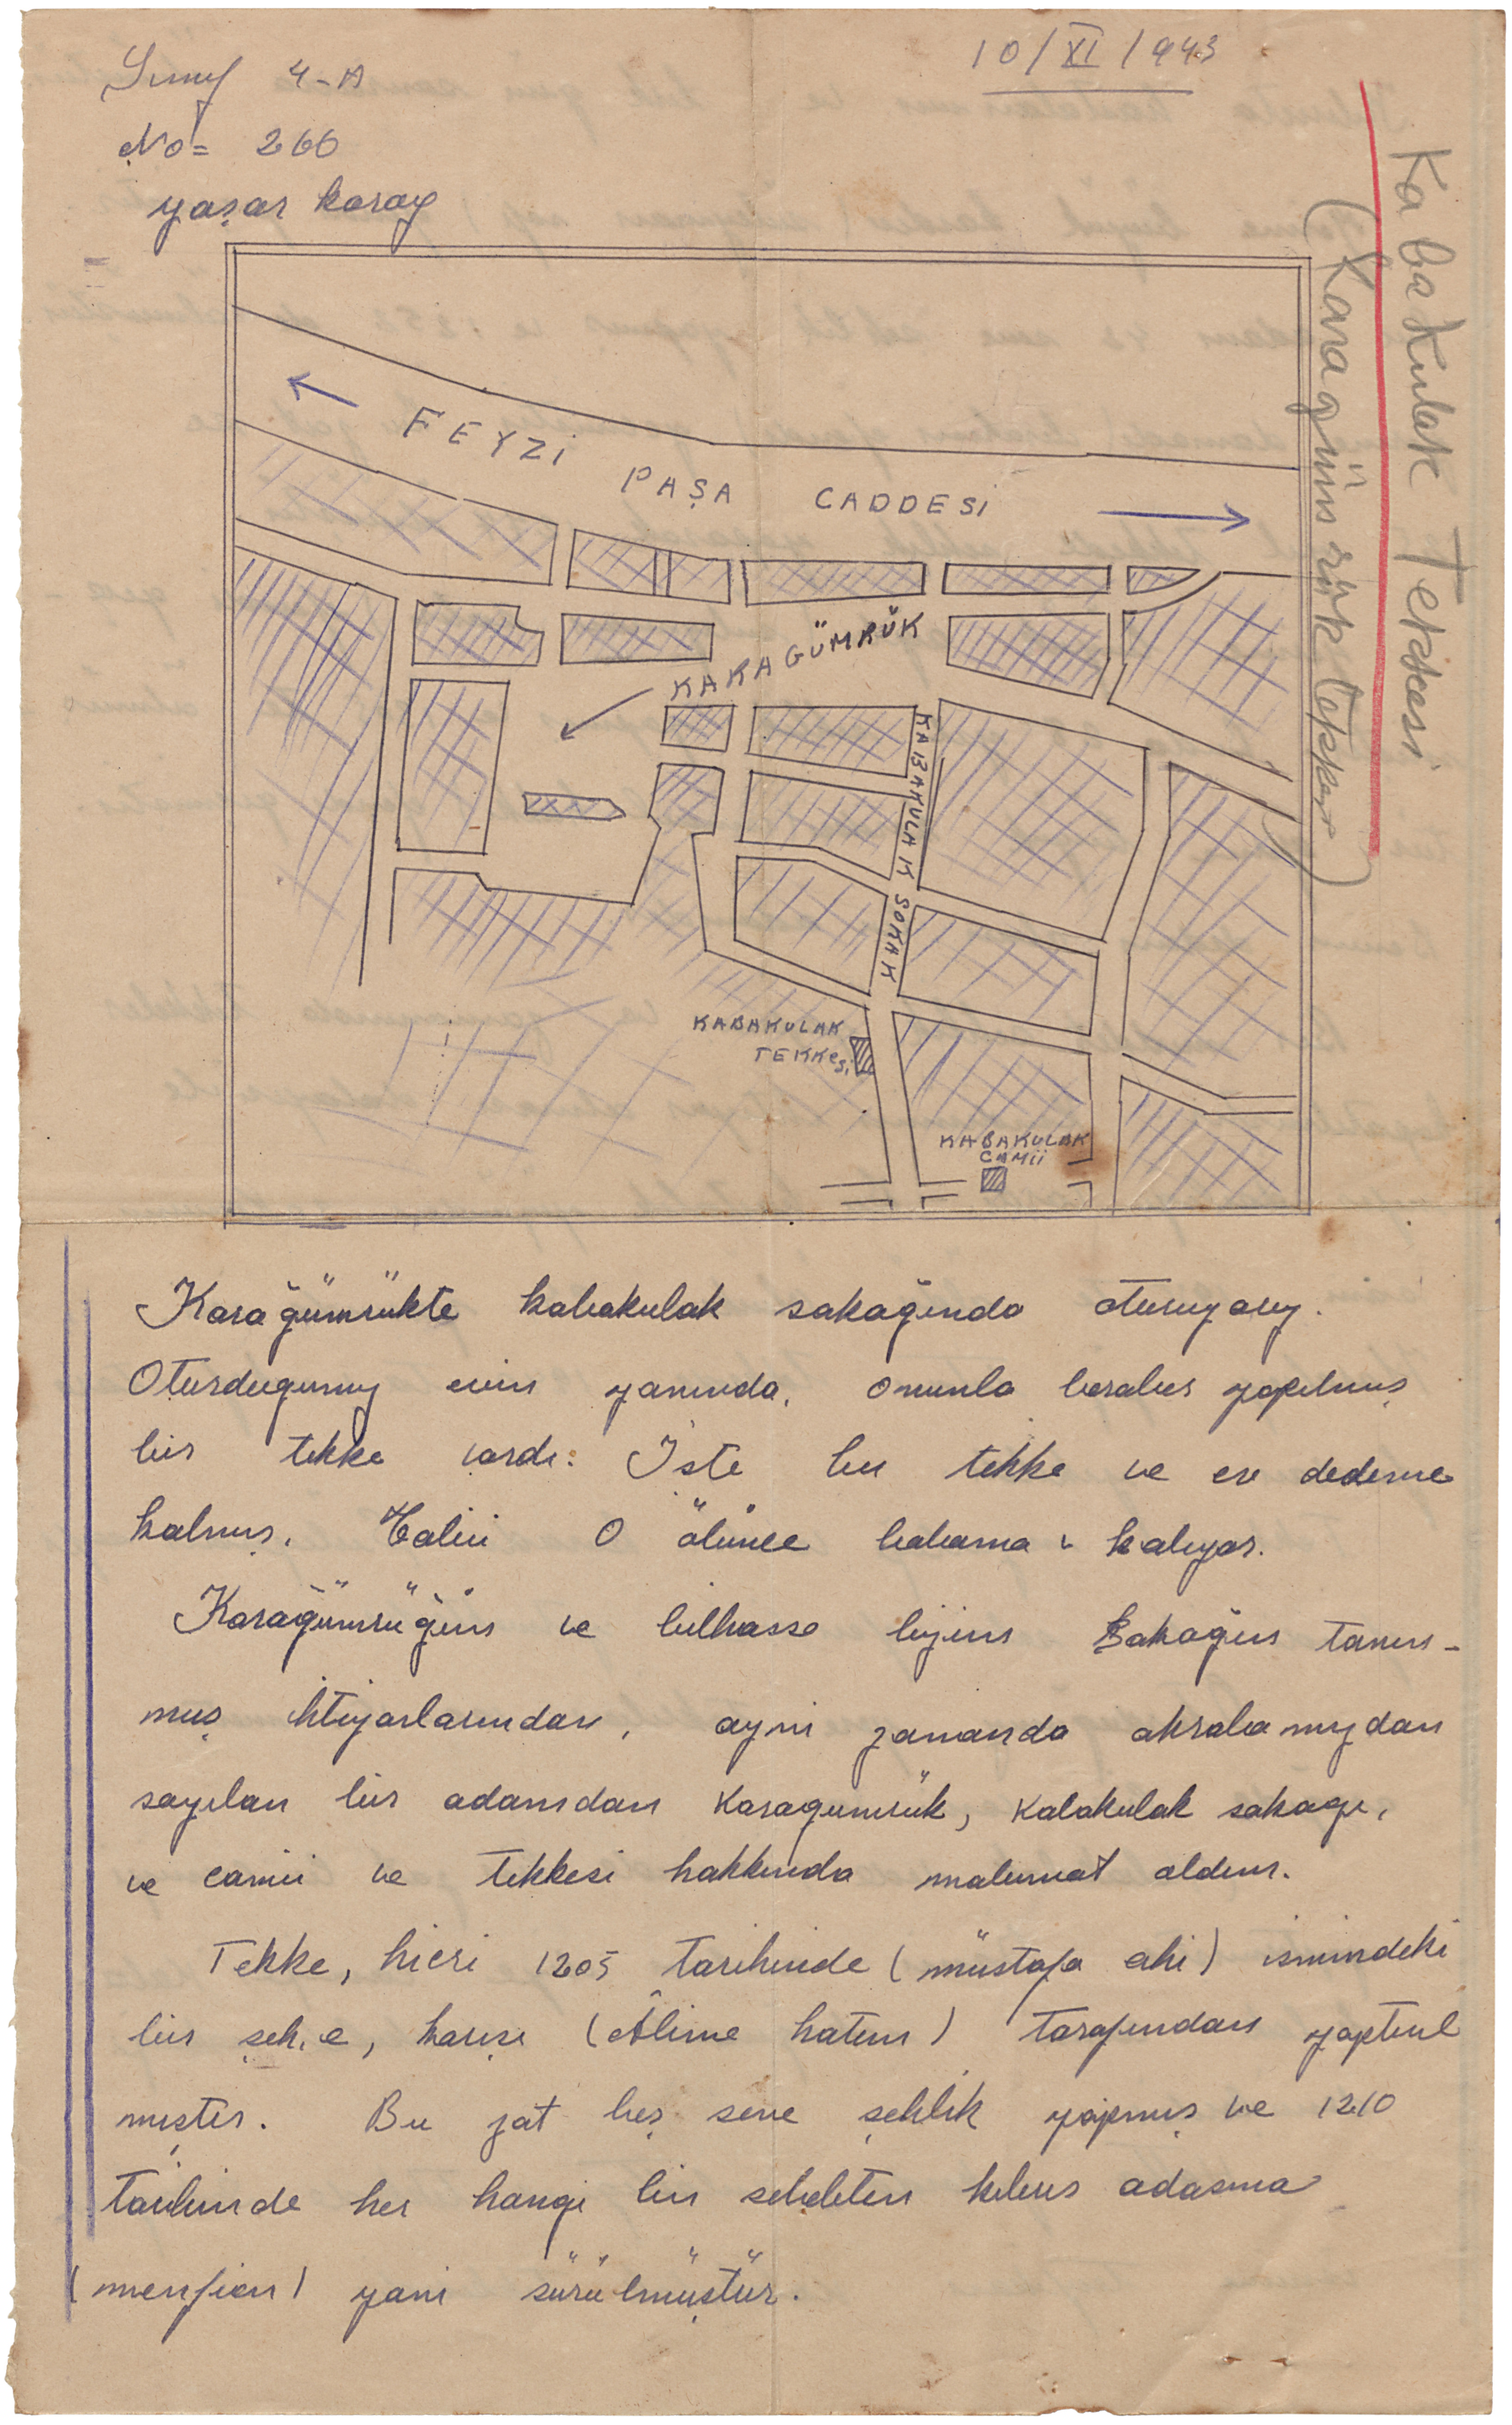 Sınıf 4-A
10/XI/943
No= 266
yaşar koray
Kabakulak Tekkesi
(Karagümrük Tekkesi)
FEYZİ PAŞA CADDESİ
KARAGÜMRÜK
KABAKULAK SOKAK
KABAKULAK
TEKKESİ
KABAKULAK
CAMİİ
Karagümrükte kabakulak sokağında oturuyoruz.
Oturduğumuz evin yanında, onunla beraber yapılmış
bir tekke vardı. İşte bu tekke ve ev dedeme
kalmış. Tabii O ölünce babama kalıyor.
Karagümrüğün ve bilhassa bizim Sokağın tanın-
mış ihtiyarlarından, ayni zamanda akrabamızdan
sayılan bir adamdan Karagumrük, Kabakulak sokağı,
ve camii ve tekkesi hakkında malumat aldım.
Tekke, hicri 1205 tarihinde (müstafa ahi) ismindeki
bir şeh.e, karısı (Âlime hatun) tarafından yaptırıl
mıştır. Bu zat beş sene şehlik yapmış ve 1210
tarihinde her hangi bir sebebten kıbrıs adasına
(menfien) yani sürülmüştür.